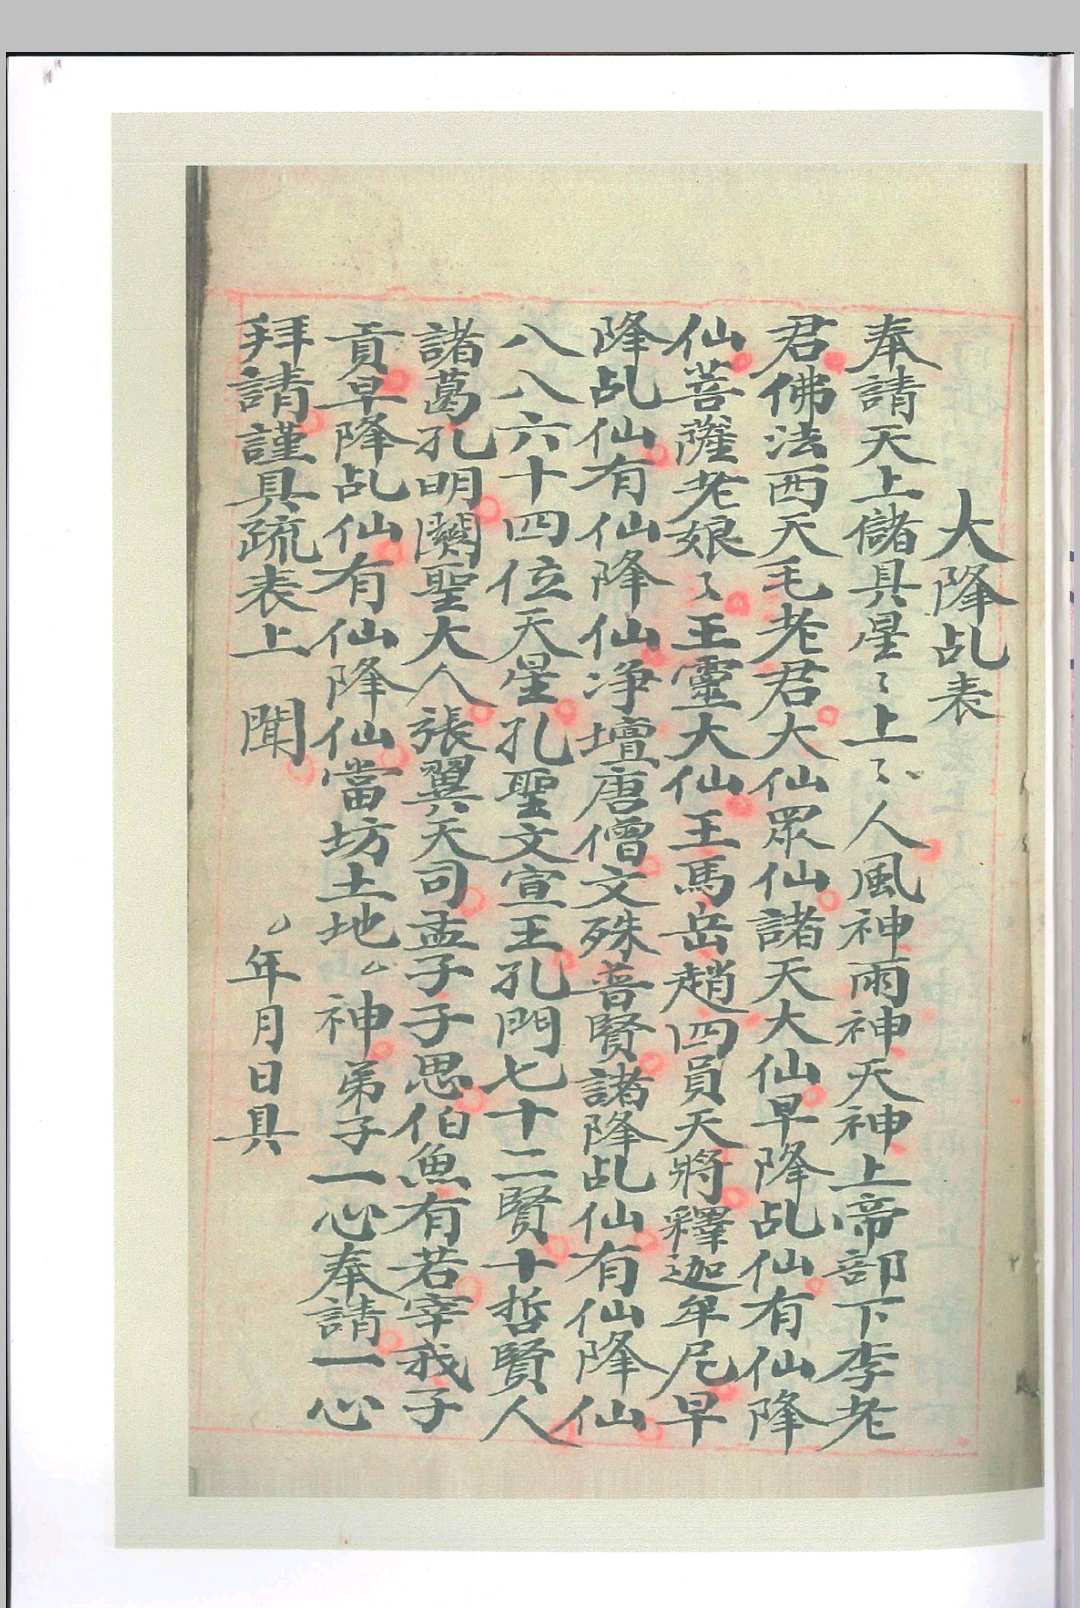 大降乩表
奉請天上儲具星〻上〻人風神雨神天神上帝部下李老
君佛法西天毛老君大仙眾仙諸天大仙早降乩仙有仙降
仙菩薩老娘〻王靈大仙王馬岳趙四員天將釋迦牟尼早
降乩仙有仙降仙净壇唐僧文殊普賢諸降乩仙有仙降仙
八八六十四位天星孔聖文宣王孔門七十二賢十哲賢人
諸葛孔明關聖大人張翼天司孟子子思伯魚有若宰我子
貢早降乩仙有仙降仙當坊土地厶神弟子一心奉請一心
拜請謹具疏表上 聞 厶年月日具